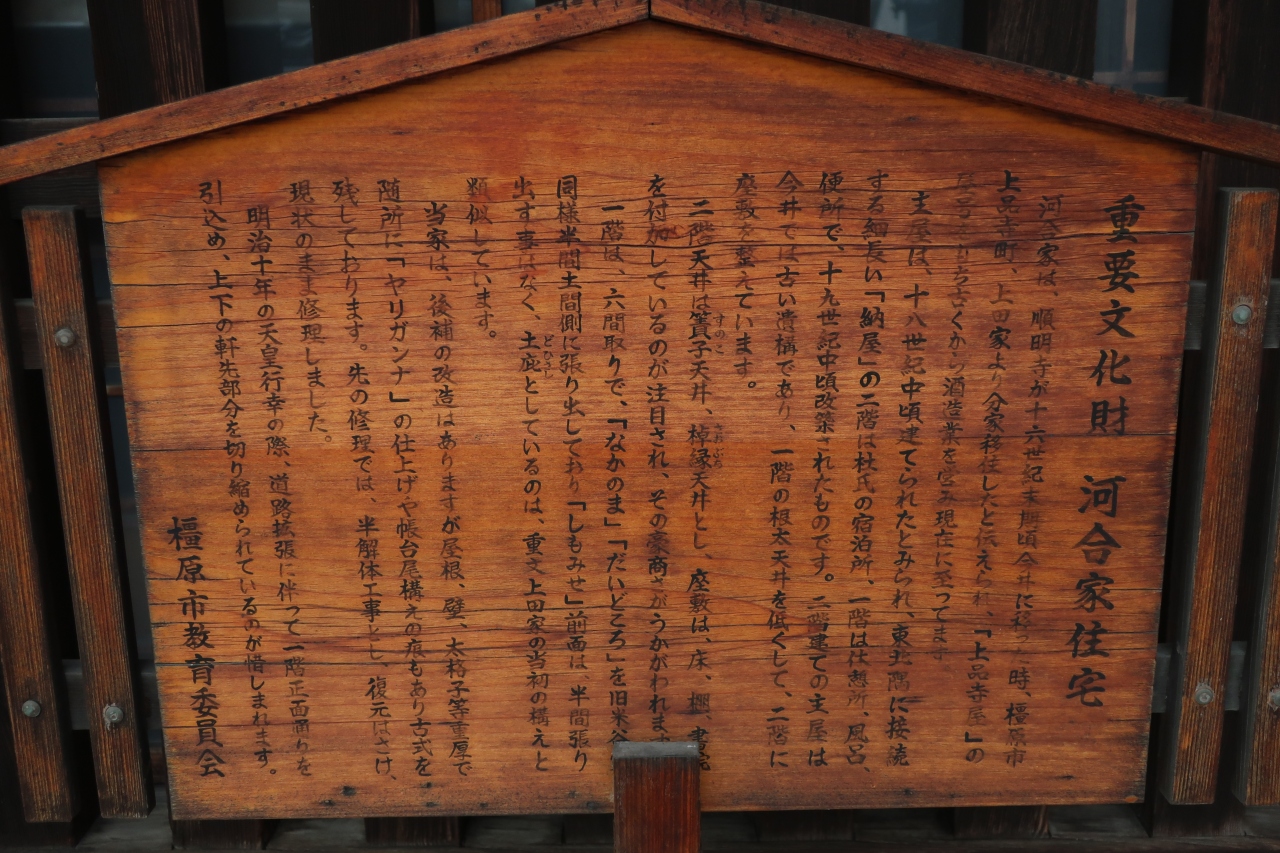 重要文化財 河合家住宅
河合家は、順明寺が十六世紀末期頃今井に移った時、橿原市
上品寺町、上田家より分家移住したと伝えられ、「上品寺屋」の
屋号で古くから酒造業を営み現在に至ってます
主屋は、十八世紀中頃建てられたとみられ、東北隅に接続
する細長い「納屋」の二階は杜氏の宿泊所、一階は休憩所、風呂、
便所で、十九世紀中頃改築されたものです。二階建ての主屋は
今井では古い遺構であり、一階の根太天井を低くして、二階に
座敷を整えています。
二階天井は簀子天井、棹縁天井とし、座敷は、床、棚、書院
を付加しているのが注目され、その豪商さがうかがわれます
一階は、六間取りで、「なかのま」「だいどころ」を旧米谷
同様半間土間側に張り出しており「しもみせ」前面は、半間張り
出す事はなく、土庇としているのは、重文上田家の当初の構えと
類似しています。
当家は、後補の改造はありますが屋根、壁、太格子等重厚で
随所に「ヤリガンナ」の仕上げや帳台屋構えの痕もあり古式を
残しております。先の修理では、半解体工事とし、復元はさけ、
現状のまま修理しました。
明治十年の天皇行幸の際、道路拡張に伴って一階正面通りを
引込め、上下の軒先部分を切り縮められているのが惜しまれます。
橿原市教育委員会